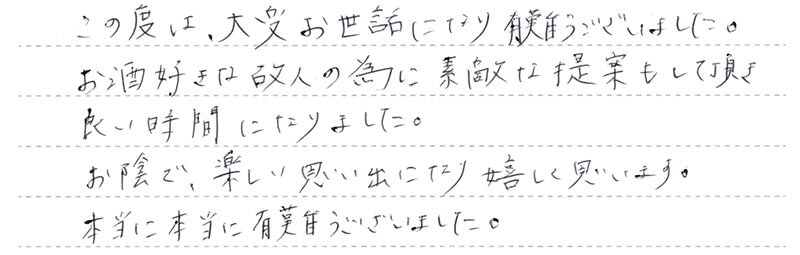 この度は、大変お世話になり有難うございました。
お酒好きな故人の為に素敵な提案もして頂き
良い時間になりました。
お陰で、楽しい思い出になり嬉しく思います。
本当に本当に有難うございました。